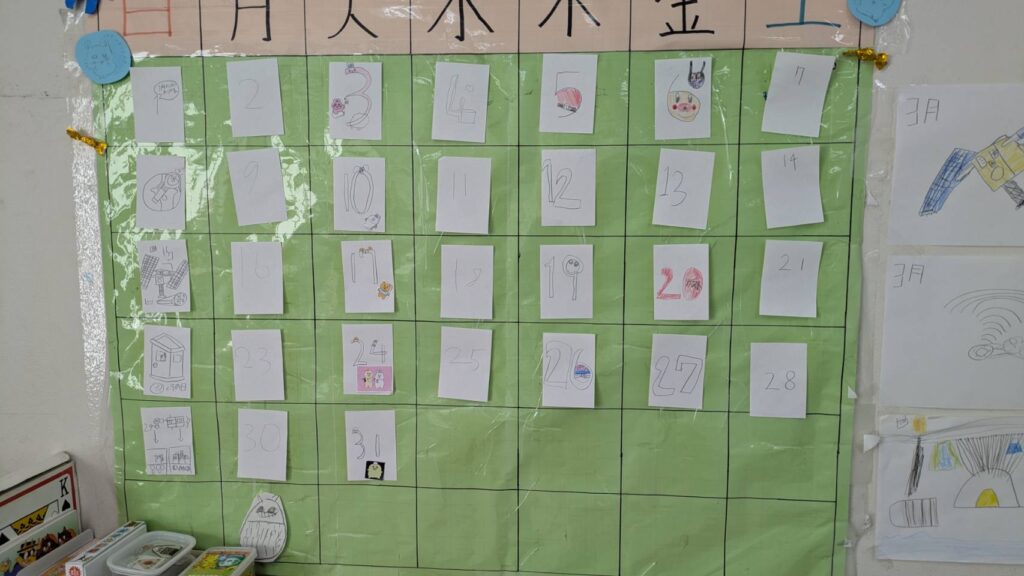 日 月 火 水 木 金 土
2 3 4 5 6 7
9 10 11 12 13 14
16 17 18 19 20 21
23 24 25 26 27 28
30 31
3月
3月
K